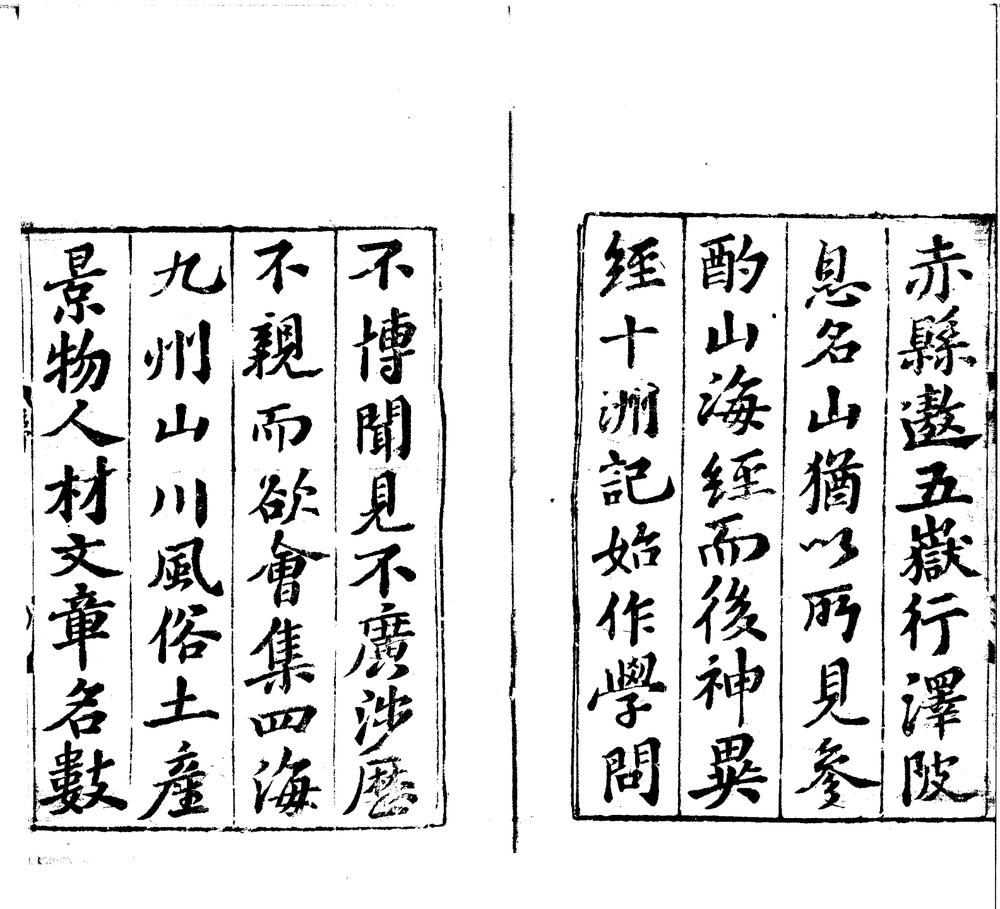 赤縣遨五嶽行澤陂
息名山猶以所見參
酌山海經而後神異
經十洲記始作學問
不博聞見不廣涉歷
不親而欲會集四海
九州山川風俗土產
景物人材文章名數